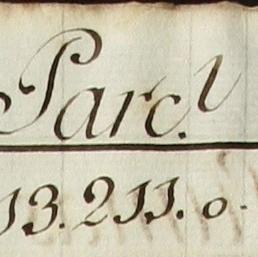 Parc.l
13.211.0.